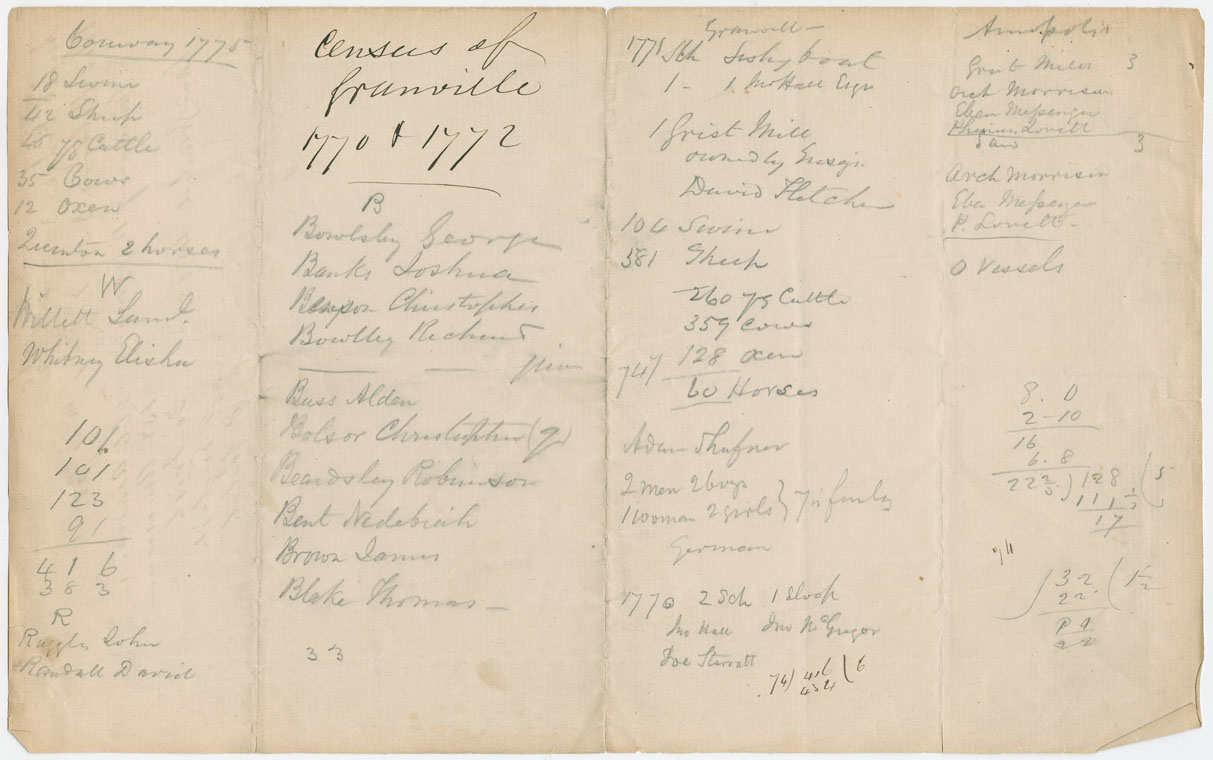 Conway 1775
18 Swine
42 Sheep
46 yg Cattle
35 Cows
12 Oxen
Quinton 2 horses
W
Willett Saml.
Whitney Elisha
101
101
123
91
416
383
R
Ruggles John
Randall David
Census of
Granville
1770 & 1772
B
Bowlsby George
Banks Joshua
Benson Christopher
Bowlby Richard
Buss Alden
Bolsor Christopher (g)
Beardsley Robinson
Bent Nedebiah
Brown James
Blake Thomas
33
Granville
1771 Sch fishg boat
1 - 1 Jno Hall Esqr
1 Grist Mill
owned by Ensign
David Fletcher
104 Swine
581 Sheep
260 yg Cattle
359 Cows
747 128 Oxen
60 Horses
Adam Shafner
2 men 2 boys
1 woman 2 girls } 7 in family
German
1770 2 Sch 1 Sloop
Jno Hall Jno McGregor
Joe Starratt
74) 416 ( 6
Annapolis
Grist Mills 3
Arch Morrison
Eben Messenger
Phineas Lovett
Saw 3
Arch Morrison
Eben Messenger
P. Lovett
0 Vessels
8. 0
2 - 10
16
6. 8
22 2/3 ) 128 ( 5
111
17
32 ( 1 1/2
22